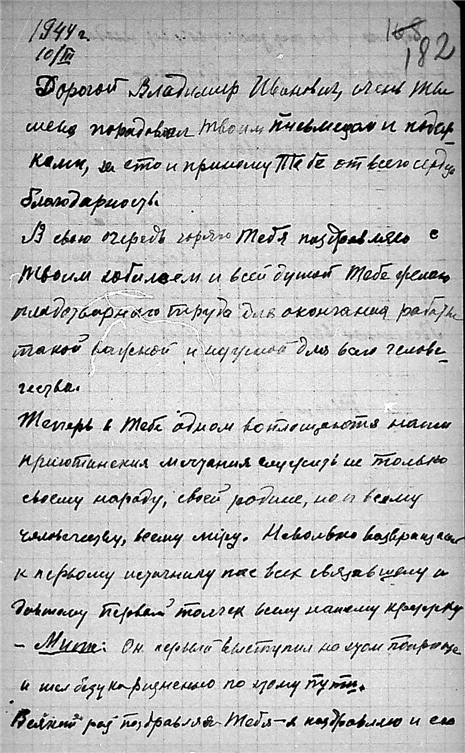 1944 г.
10/III
168
182
Дорогой Владимир Иванович, очень Ты
меня порадовал Твоим письмецом и подар-
ками, за сто и приношу Тебе от всего сердца
благодарность.
В свою очередь горячо Тебя поздравляю с
Твоим юбилеем и всей душой Тебе желаю
плодотворного труда для окончания работы
такой важной и нужной для всего челове-
чества.
Теперь в Тебе одном воплощаются наши
приютинския мечтания служить не только
своему народу, своей родине, но и всему
человечеству, всему миру. Невольно возвращаюсь
к первому источнику нас всех связавшему и
давшему первый толчек всему нашему кружку
он первый выступил на
и шел безукоризненно по этому пути.
Всякий раз поздравляя Тебя я поздравляю и его